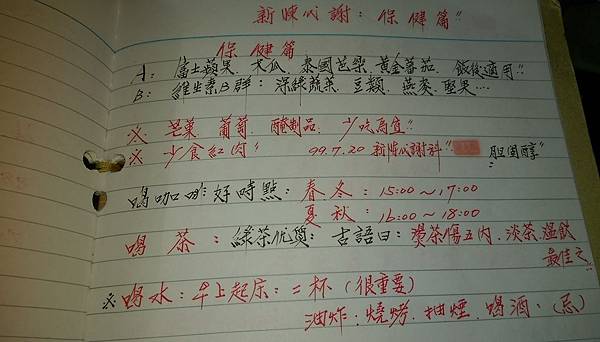 新陳代謝：保健篇!!
保健篇
A：富士蘋果、木瓜、泰國芭樂、黃金蕃茄、飯後適用!!
B：維生素B群：深綠蔬菜、豆類、燕麥、堅果…
※芒菓、葡萄、醃製品、少吃為宜!!
※少食紅肉" 99.7.20 新陳代謝科" 胆固醇"
喝咖啡好時點：春.冬：15:00～17:00
夏 秋：16:00～18:00
喝茶：綠茶优質：古語曰：燙茶傷五內、淡茶.溫飲
最佳之
※喝水：早上起床：二杯（很重要）
油炸．燒烤．抽煙．喝酒：(忌)